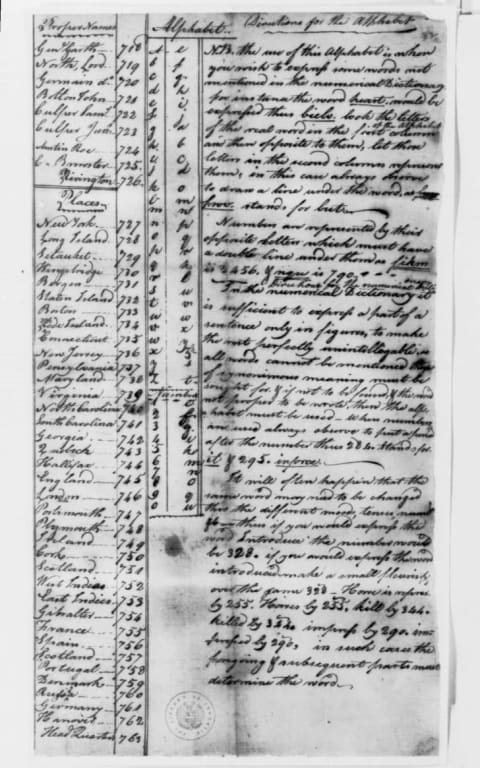 Proper Names
Genl Garth 718
North, Lord 719
Germain 720
Bolton John 721
Culper Saml 722
Culper Junr 723
Austin Roe 724
C. Brewster 725
Rivington 726
Places
New York 727
Long Island 728
Setauket 729
Kingsbridge 730
Bergen 731
Staten Island 732
Boston 733
Rode Island 734
Connecticut 735
New Jersey 736
Pensylvania 737
Maryland 738
Virginia 739
North Carolina 740
South Carolina 741
Georgia 742
Quebeck 743
Hallifax 744
England 745
London 746
Portsmouth 747
Plymouth 748
Ireland 749
Cork 750
Scotland 751
West Indies 752
East Indies 753
Gibralter 754
France 755
Spain 756
Scotland 757
Portugal 758
Denmark 759
Rusia 760
Germany 761
Hanover 762
Head Quarters 763
Alphabet
a e
b f
c g
d h
e i
f j
g a
h b
i c
j d
k o
l m
m n
n p
o q
p r
q k
r l
s u
t v
u w
v x
w y
x z
y s
z t
Numbers
Directions for the Alphabet
N.B. the use of this Alphabet is when
you wish to express some words not
mentioned in the numerical Dictionary
for instance the word heart. would be
expressed thus biels. look the letters
of the Alphabet
of the real word in the first column
and then opposite to them, let those
letters in the second column represent
them, in this case always observe
to draw a line under the word, as
fwv. stands for but
Numbers are represented by their
opposite letters which must have
a double line under them as
is 2456. & is 790.
In the numerical Dictionary it
is sufficient to express a part of a
sentence only in figures, to make
the rest perfectly unintellegable, as
all words cannot be mentioned
of synonimous meaning must be
sought for, & if not to be found, & the word
not proper to be wrote, then the alphabet
must be used - When numbers
are used always observe to put a period
after the number thus 284. stands for
it & 295. inforce
It will often happen that the
same word may need to be changed
thro the different moods, tenses, numbers
thus if you would express the
word Introduce the number would
be 328. if you would express the word
introduced make a small flourish
over the same 328 - Horse is repre
by 255. Horses by 255. kill by 344.
killed by 344. impress by 290. im-
pressed by 290. in such cases the
foregoing & subsequent parts must
determine the word